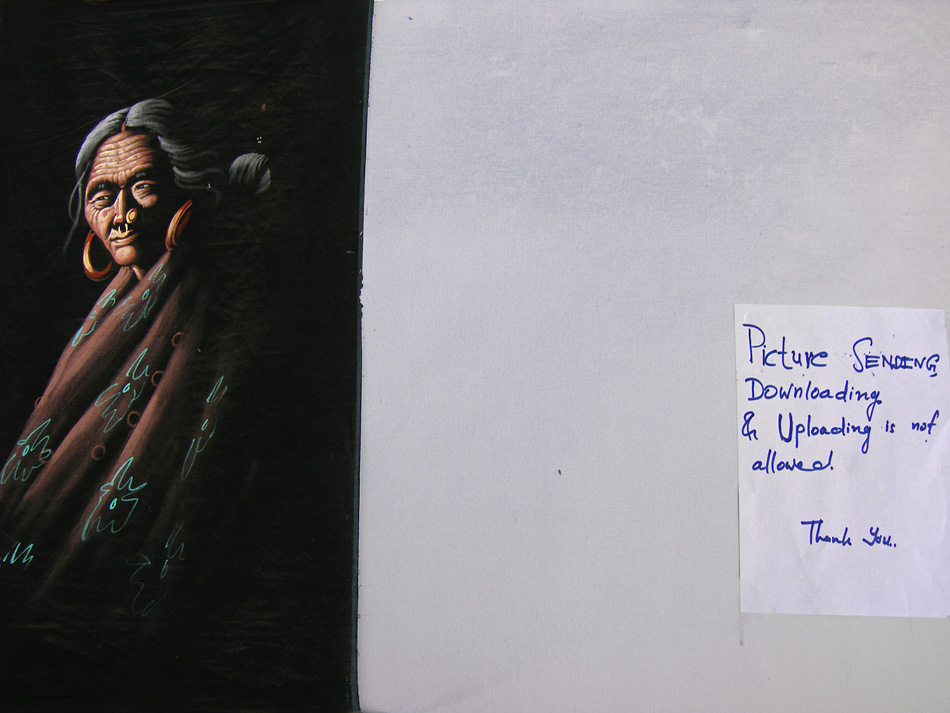 Picture SENDING,
Downloading
& Uploading is not
allowed.
Thank You..